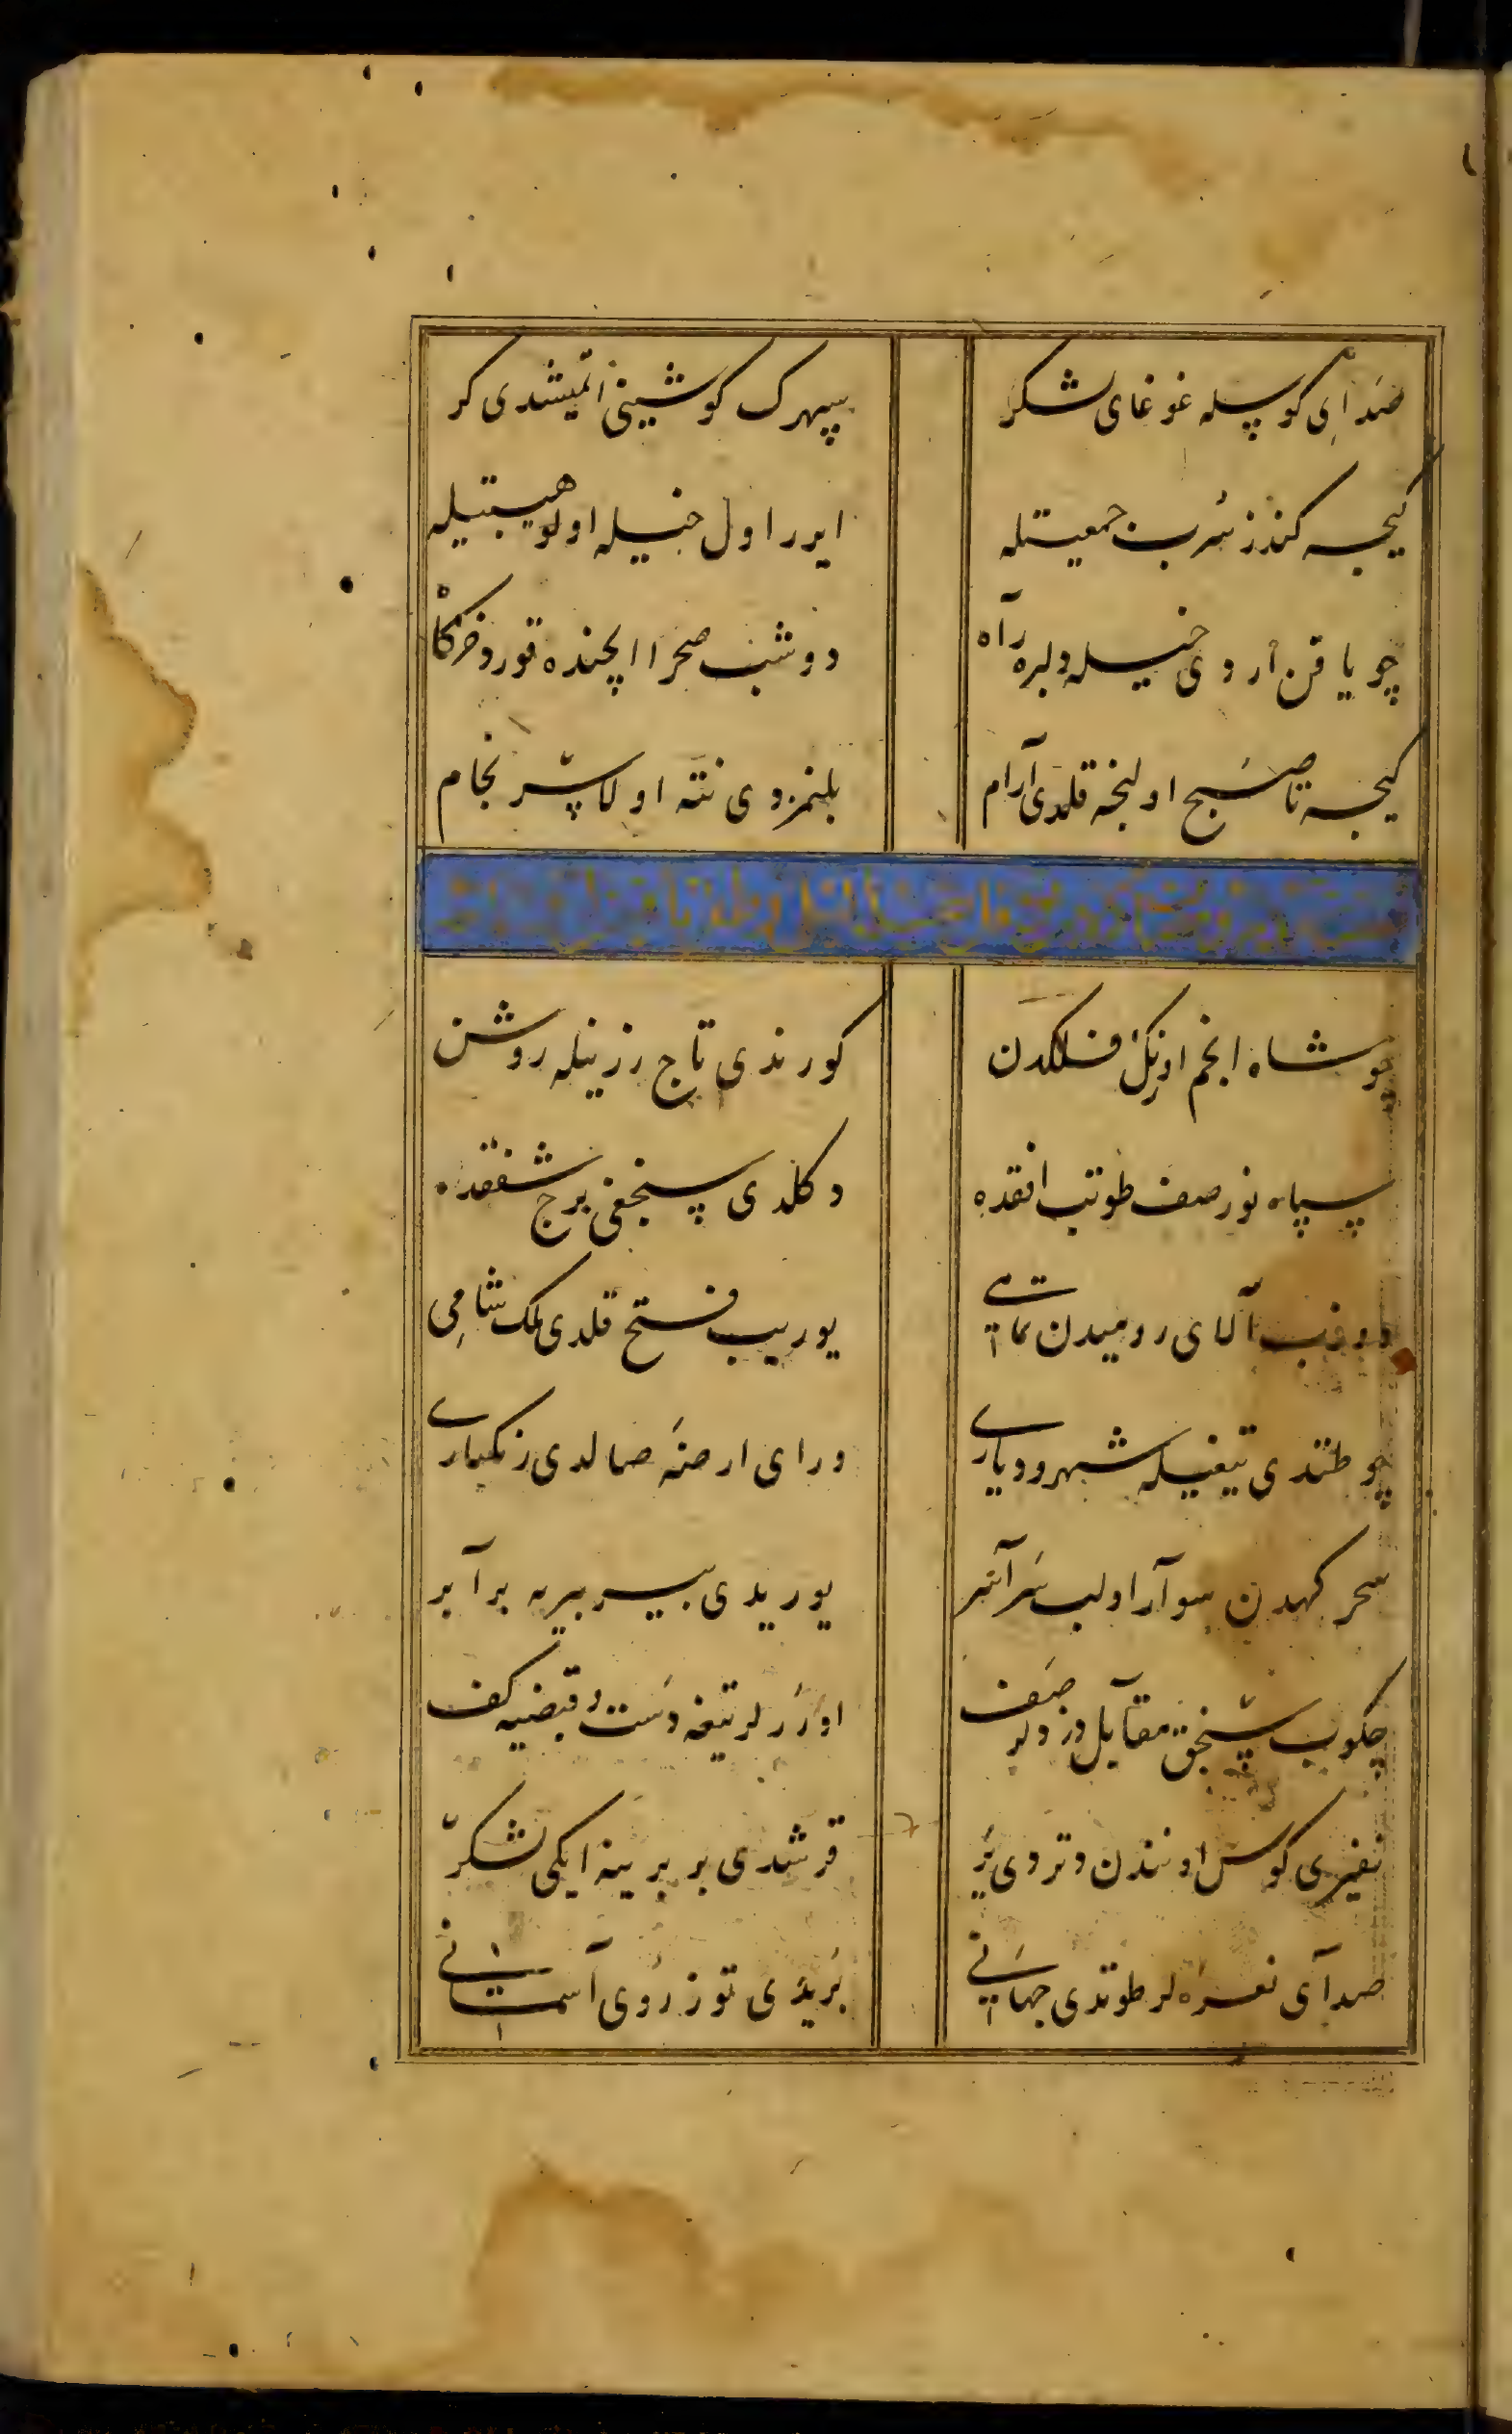 صدای کوسیله غوغای لشکر
سپهرک کوشینی ایتمشدی کر
کیجه کندز سُرب جمعیتله
ایرر اول خیله اولو هیبتیله
چو یاقن اردوی خیله ولره راه
دوشب صحرا ایچنده قوردی خرکاه
کیجه تا صبح اولنجه قلدی آرام
بلنمزدی نته اولا سرنجام
چو شاه انجم اورنک فلکدن
کورندی تاج زرینله روشن
سپاه نور صف طوتب افقده
دکلدی سنجغی برج شفقده
آلای رومیدن تمامی
یوریب فتح قلدی ملک شامی
چو طتدی تیغیله شهر و دیاری
ورای ارضه صالدی زنکباری
سحر کهدن سوار اولب سراسر
یوریدی بیر بیریه برابر
چکوب سنجق مقابل وردولر صف
اوررلر تیغه دست و قبضیه کف
نفیری کوس اونندن دتردی یر
قرشدی بر برینه ایکی لشکر
صدای نعره لر طوتدی جهانی
بریدی توز روی آسمانی